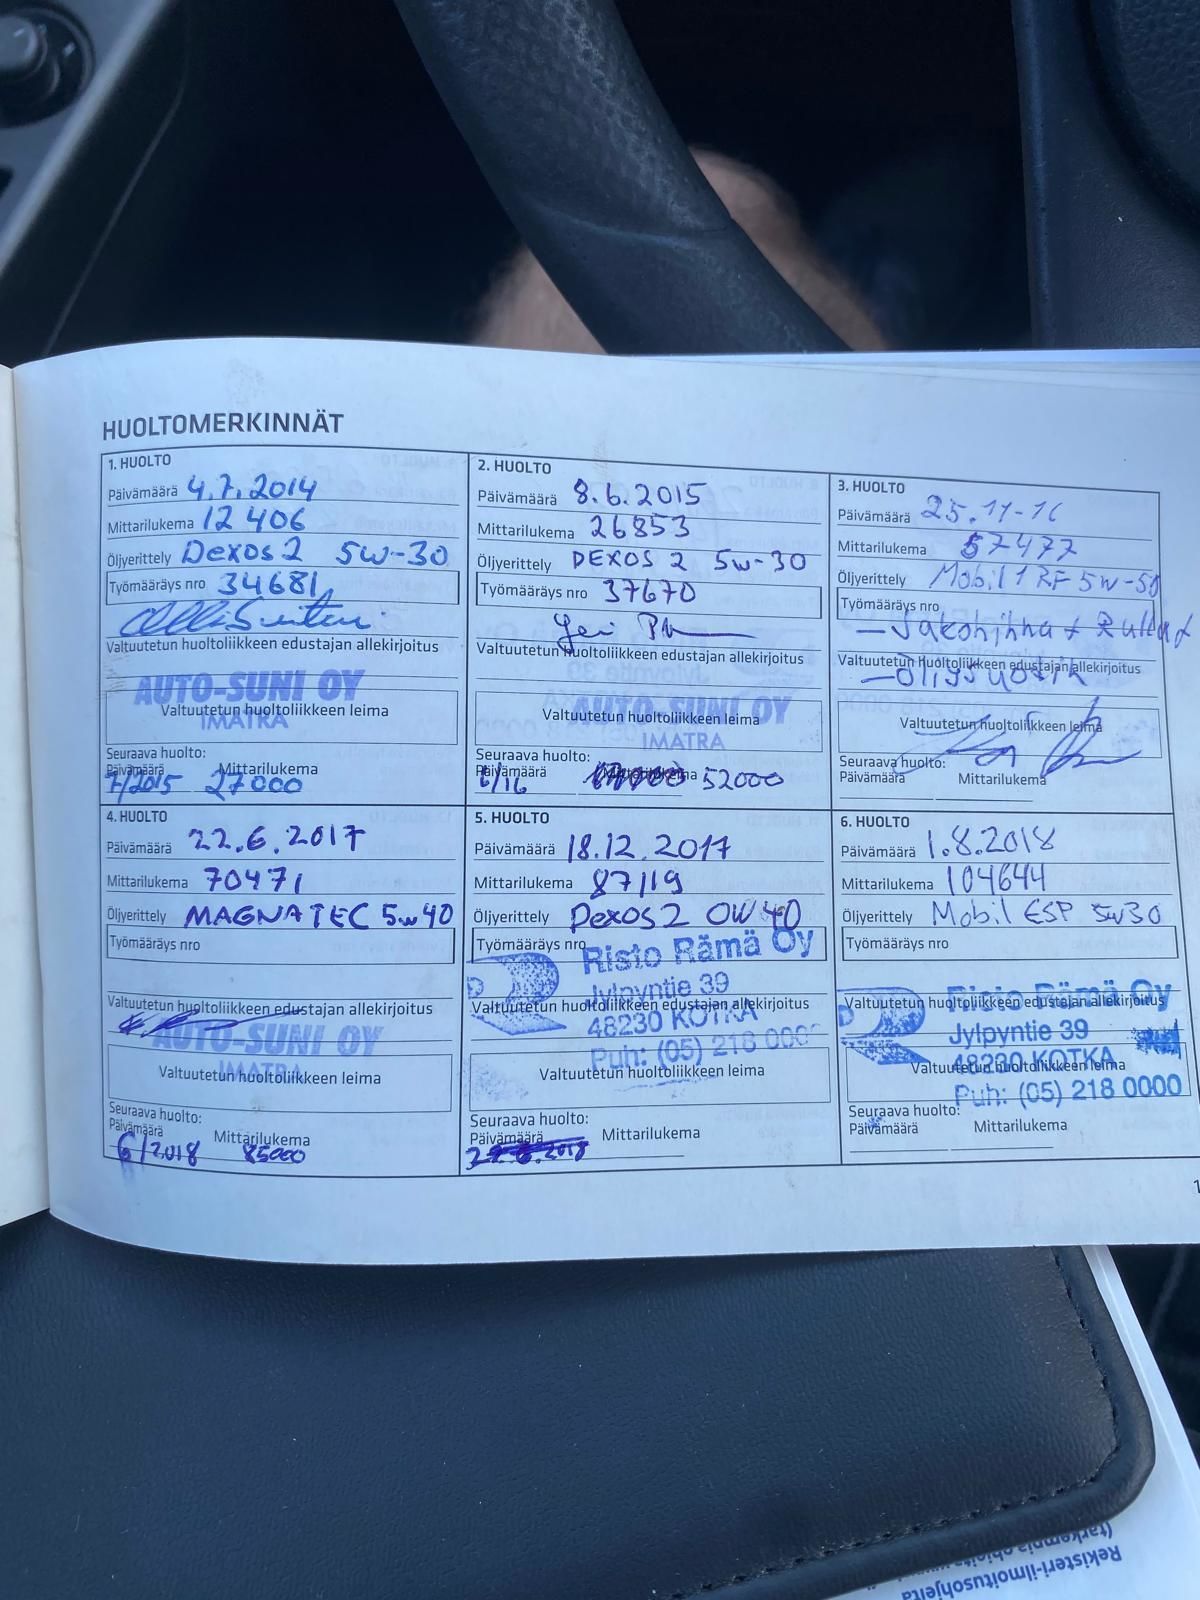 HUOLTOMERKINNÄT
1. HUOLTO
Päivämäärä 4.7.2014
Mittarilukema 12 406
Öljyerittely Dexos 2 5w-30
Työmääräys nro 34681
Valtuutetun huoltoliikkeen edustajan allekirjoitus
AUTO-SUNI OY
Valtuutetun huoltoliikkeen leima
IMATRA
Seuraava huolto:
Päivämäärä Mittarilukema
7/2015 27000
2. HUOLTO
Päivämäärä 8.6.2015
Mittarilukema 26853
Öljyerittely DEXOS 2 5w-30
Työmääräys nro 37670
Valtuutetun huoltoliikkeen edustajan allekirjoitus
AUTO-SUNI OY
Valtuutetun huoltoliikkeen leima
IMATRA
Seuraava huolto:
Päivämäärä Mittarilukema
6/16 52000
3. HUOLTO
Päivämäärä 25.11-16
Mittarilukema 57477
Öljyerittely Mobil 1 RF 5w-50
Työmääräys nro
- Jakohihna + Rullat
Valtuutetun huoltoliikkeen edustajan allekirjoitus
Valtuutetun huoltoliikkeen leima
Seuraava huolto:
Päivämäärä Mittarilukema
4. HUOLTO
Päivämäärä 22.6.2017
Mittarilukema 70471
Öljyerittely MAGNATEC 5w40
Työmääräys nro
Valtuutetun huoltoliikkeen edustajan allekirjoitus
AUTO-SUNI OY
Valtuutetun huoltoliikkeen leima
IMATRA
Seuraava huolto:
Päivämäärä Mittarilukema
6/2018 85000
5. HUOLTO
Päivämäärä 18.12.2017
Mittarilukema 87119
Öljyerittely Dexos 2 0W40
Työmääräys nro
Risto Rämä Oy
Jylpyntie 39
Valtuutetun huoltoliikkeen edustajan allekirjoitus
48230 KOTKA
Puh: (05) 218 000
Valtuutetun huoltoliikkeen leima
Seuraava huolto:
Päivämäärä Mittarilukema
6. HUOLTO
Päivämäärä 1.8.2018
Mittarilukema 104644
Öljyerittely Mobil ESP 5w30
Työmääräys nro
Risto Rämä Oy
Valtuutetun huoltoliikkeen edustajan allekirjoitus
Jylpyntie 39
48230 KOTKA
Valtuutetun huoltoliikkeen leima
Puh: (05) 218 0000
Seuraava huolto:
Päivämäärä Mittarilukema
Rekisteri-ilmoitusohjeita